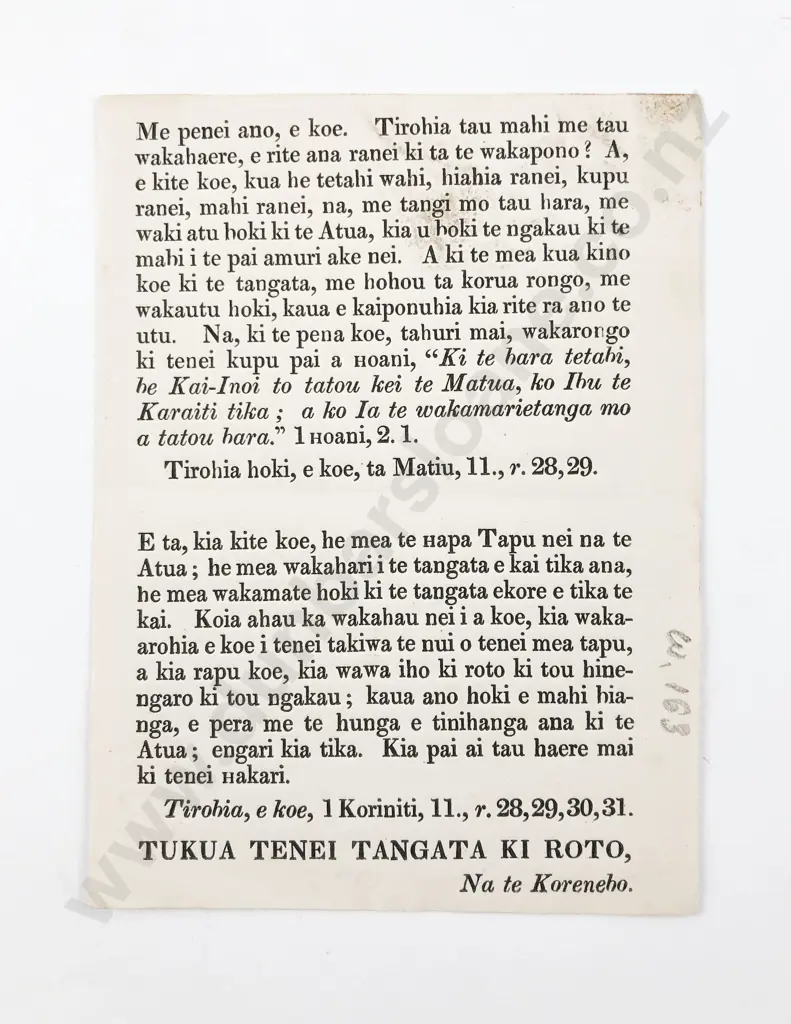 Me penei ano, e koe. Tirohia tau mahi me tau
wakahaere, e rite ana ranei ki ta te wakapono? A,
e kite koe, kua he tetahi wahi, hiahia ranei, kupu
ranei, mahi ranei, na, me tangi mo tau hara, me
waki atu hoki ki te Atua, kia u hoki te ngakau ki te
mahi i te pai amuri ake nei. A ki te mea kua kino
koe ki te tangata, me hohou ta korua rongo, me
wakautu hoki, kaua e kaiponuhia kia rite ra ano te
utu. Na, ki te pena koe, tahuri mai, wakarongo
ki tenei kupu pai a Hoani, "Ki te hara tetahi,
he Kai-Inoi to tatou kei te Matua, ko Ihu te
Karaiti tika; a ko Ia te wakamarietanga mo
a tatou hara." 1 Hoani, 2. 1.
Tirohia hoki, e koe, ta Matiu, 11., r. 28,29.
E ta, kia kite koe, he mea te Hapa Tapu nei na te
Atua; he mea wakahari i te tangata e kai tika ana,
he mea wakamate hoki ki te tangata ekore e tika te
kai. Koia ahau ka wakahau nei i a koe, kia waka-
arohia e koe i tenei takiwa te nui o tenei mea tapu,
a kia rapu koe, kia wawa iho ki roto ki tou hine-
ngaro ki tou ngakau; kaua ano hoki e mahi hia-
nga, e pera me te hunga e tinihanga ana ki te
Atua; engari kia tika. Kia pai ai tau haere mai
ki tenei Hakari.
Tirohia, e koe, 1 Koriniti, 11., r. 28,29,30,31.
TUKUA TENEI TANGATA KI ROTO,
Na te Koreneho.
W, 163